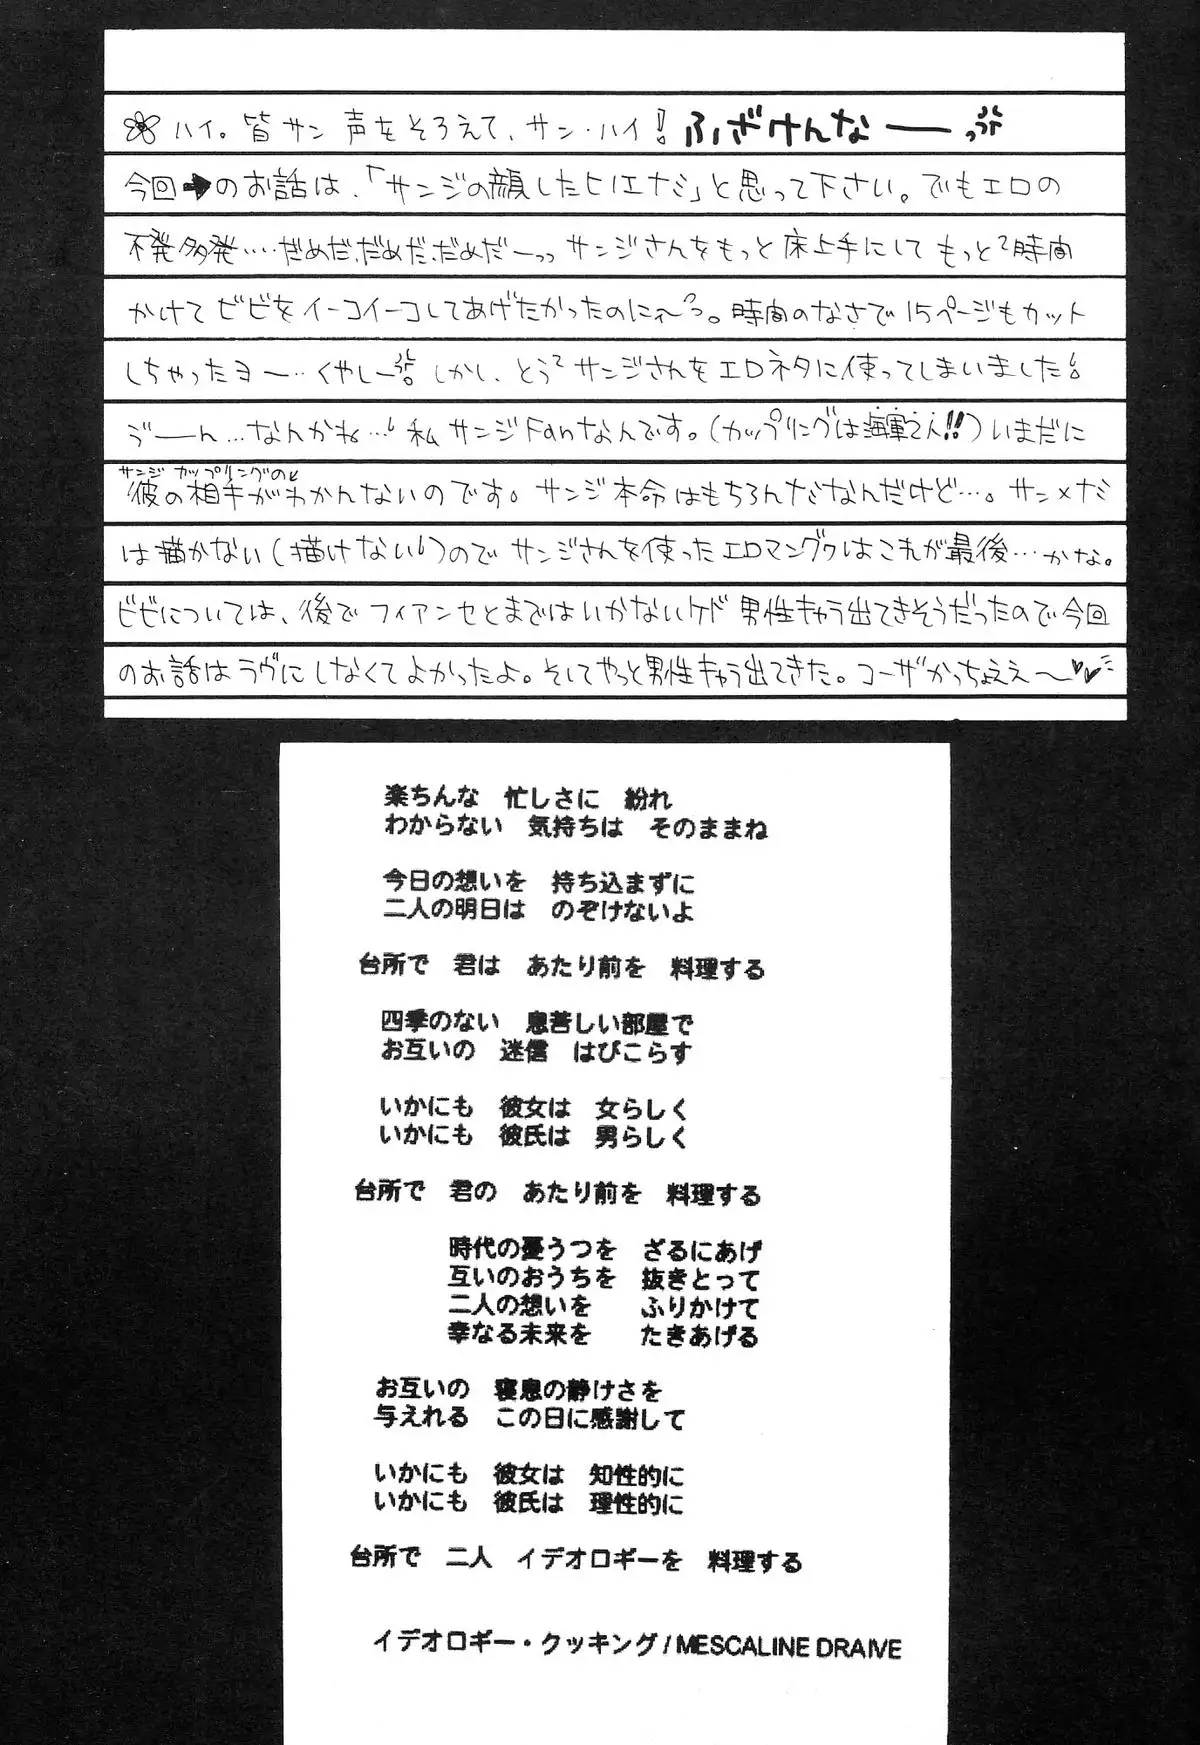 ハイ。皆サン 声をそろえて、サン・ハイ! ふざけんなーーっ
今回➔のお話は、「サンジの顔したヒノエナミ」と思って下さい。でもエロの
不発多発‥‥だめだ、だめだ、だめだーっっ サンジさんをもっと床上手にして もっと2時間
かけてビビをイーコイーコしてあげたかったのにぃ〜っ。時間のなさで15ページもカット
しちゃったヨー‥くやしー しかし、とう2サンジさんをエロネタに使ってしまいました
ゔーーん…なんかね…私 サンジFanなんです。(カップリングは海軍2人!!)いまだに
サンジ カップリングの
彼の相手がわかんないのです。サンジ本命はもちろんナミなんだけど…。サン×ナミ
は描かない(描けない)のでサンジさんを使ったエロマンガはこれが最後…かな。
ビビについては、後でフィアンセとまではいかないケド 男性キャラ出てきそうだったので今回
のお話はラヴにしなくてよかったよ。そしてやっと男性キャラ出てきた。コーザかっちょええ〜
楽ちんな 忙しさに 紛れ
わからない 気持ちは そのままね
今日の想いを 持ち込まずに
二人の明日は のぞけないよ
台所で 君は あたり前を 料理する
四季のない 息苦しい部屋で
お互いの 迷信 はびこらす
いかにも 彼女は 女らしく
いかにも 彼氏は 男らしく
台所で 君の あたり前を 料理する
時代の憂うつを ざるにあげ
互いのおうちを 抜きとって
二人の想いを ふりかけて
幸なる未来を たきあげる
お互いの 寝息の静けさを
与えれる この日に感謝して
いかにも 彼女は 知性的に
いかにも 彼氏は 理性的に
台所で 二人 イデオロギーを 料理する
イデオロギー・クッキング/MESCALINE DRAIVE